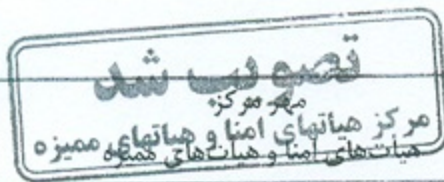 تصویب شد
مهر مرکز
مرکز هیأتهای امنا و هیاتهای ممیزه
هیات‌های امنا و هیات‌های ممیزه